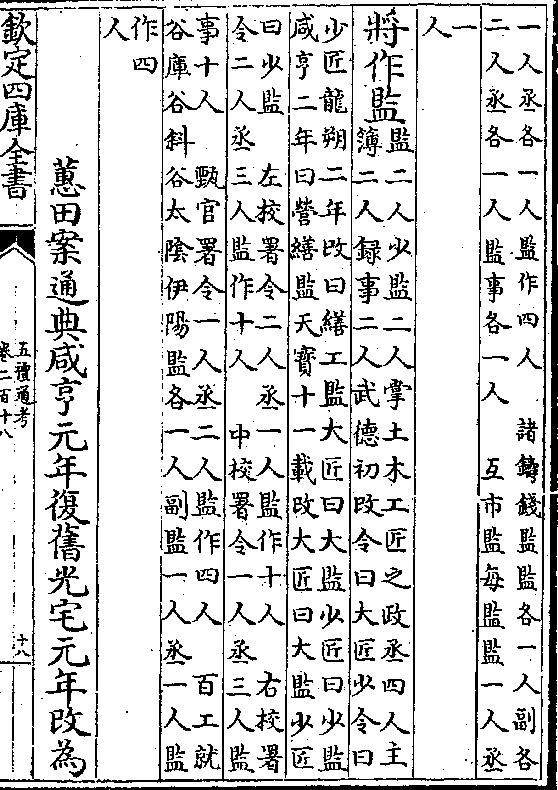 一人丞各一人監作四人　諸鑄錢監監各一人副各
二人丞各一人監事各一人　互市監每監監一人丞
一
人
將作監
監二人少監二人掌土木工匠之政丞四人主
簿二人録事二人武德初改令曰大匠少令曰
少匠龍朔二年改曰繕工監大匠曰大監少匠曰少監
咸亨二年曰營繕監天寶十一載改大匠曰大監少匠
曰少監　左校署令二人丞一人監作十人　右校署
令二人丞三人監作十人　中校署令一人丞三人監
事十人　甄官署令一人丞二人監作四人　百工就
谷庫谷斜谷太陰伊陽監各一人副監一人丞一人監
作四
人
蕙田案通典咸亨元年復舊光宅元年改為
欽定四庫全書
五禮通考
卷二百十八
十八